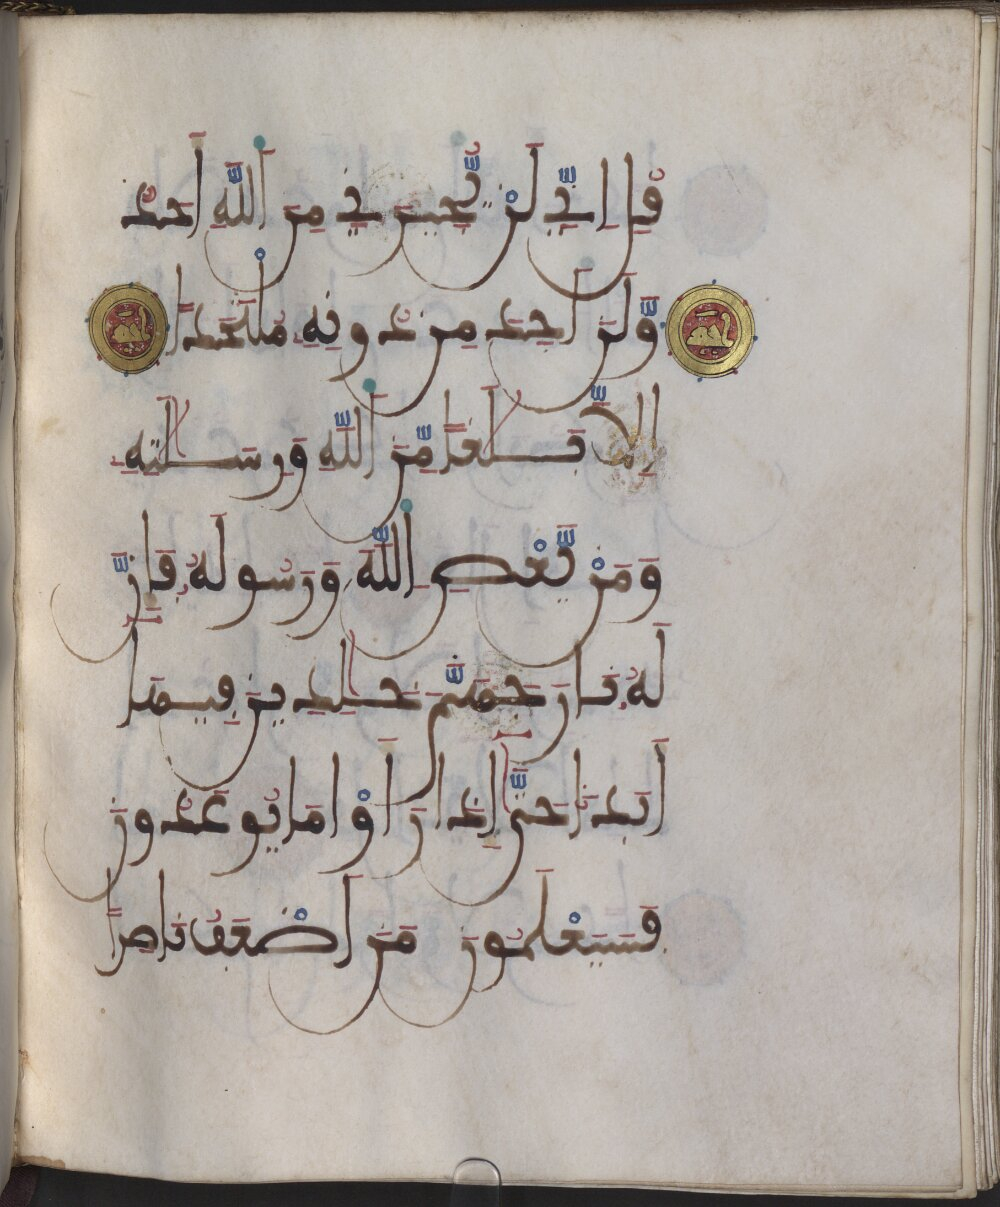 قُلِ اِنِّے لَنْ يُّجِيرَنِے مِنَ اَ۬للَّهِ أَحَدٌ
وَّلَنَ اَجِدَ مِن دُونِهِۦ مُلْتَحَداً
اِلَّا بَلَٰغاً مِّنَ اَ۬للَّهِ وَرِسَٰلَٰتِهِۦ
وَمَنْ يَّعْصِ اِ۬للَّهَ وَرَسُولَهُۥ فَإِنَّ
لَهُۥ نَارَ جَهَنَّمَ خَٰلِدِينَ فِيهَا
أَبَداً حَتَّىٰ إِذَا رَأَوْا مَا يُوعَدُونَ
فَسَيَعْلَمُونَ مَنَ اَضْعَفُ نَاصِراً